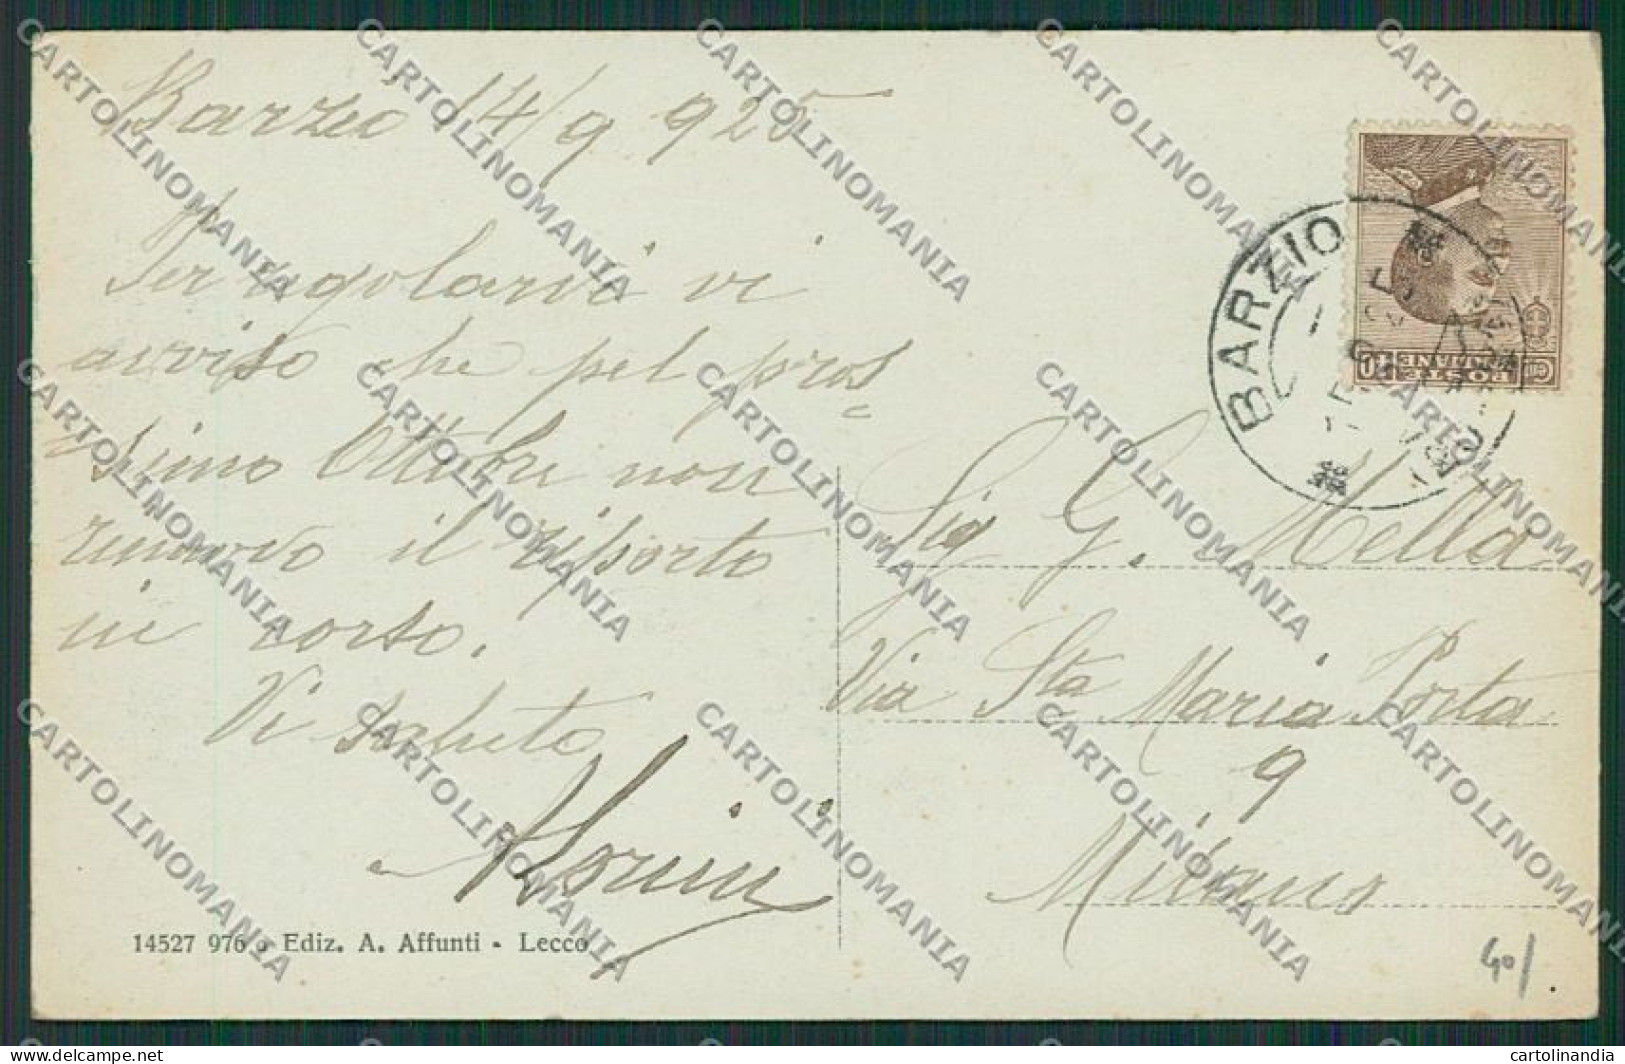 Barzio 14/9 925
Per regolarvi vi
avviso che pel pros
simo Ottobre non
rinnovo il riporto
in corso.
Vi saluto
Sig G. Mella
Via Sta Maria Porta
9
Milano
BARZIO
POSTE ITALIANE
Cent 10
14527 976 - Ediz. A. Affunti - Lecco
40/.
CARTOLINOMANIA
Delcampe.net
cartolinandia